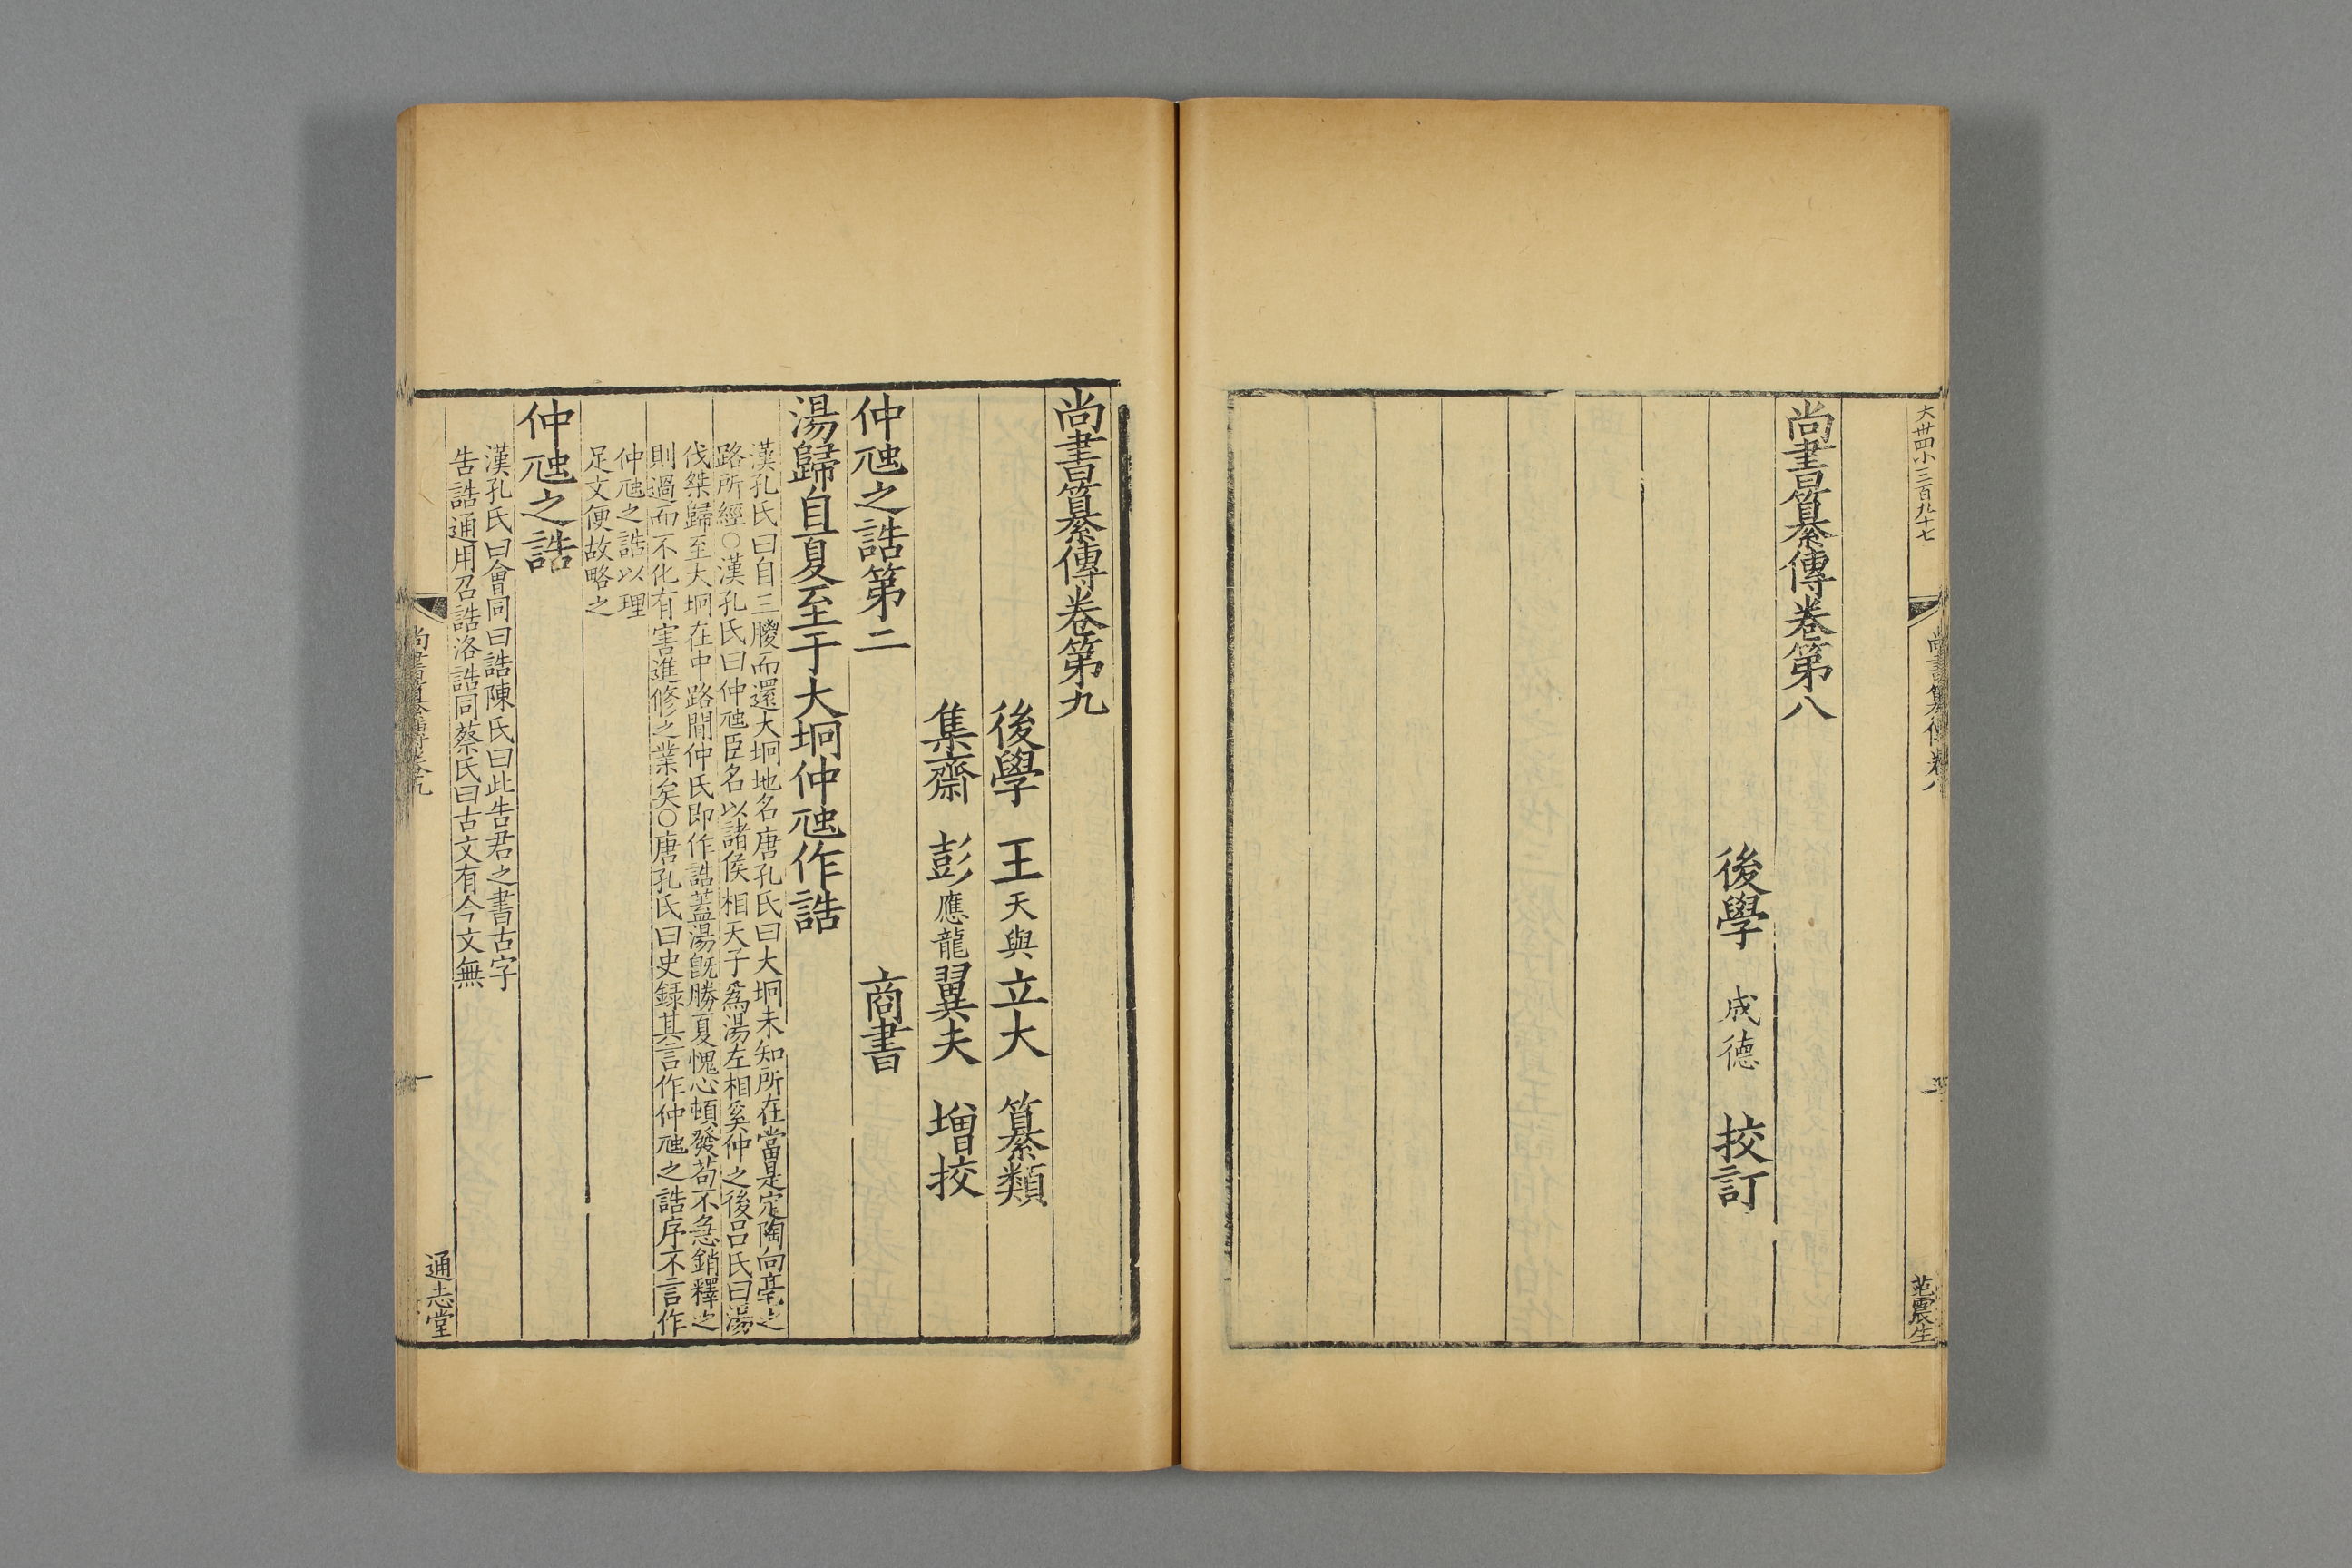 大卅四小三百九十七
尚書纂傳卷八
范震生
尚書纂傳卷第八
後學 成德 挍訂
尚書纂傳卷第九
後學 王天與立大 纂類
集齋 彭應龍翼夫 增挍
仲虺之誥第二 商書
湯歸自夏至于大坰仲虺作誥
漢孔氏曰自三朡而還大坰地名唐孔氏曰大坰未知所在當是定陶向亳之
路所經○漢孔氏曰仲虺臣名以諸侯相天子爲湯左相奚仲之後呂氏曰湯
伐桀歸至大坰在中路間仲氏即作誥蓋湯旣勝夏愧心頓發苟不急銷釋之
則過而不化有害進修之業矣○唐孔氏曰史録其言作仲虺之誥序不言作
仲虺之誥以理
足文便故略之
仲虺之誥
漢孔氏曰會同曰誥陳氏曰此告君之書古字
告誥通用召誥洛誥同蔡氏曰古文有今文無
尚書纂傳卷九
一
通志堂